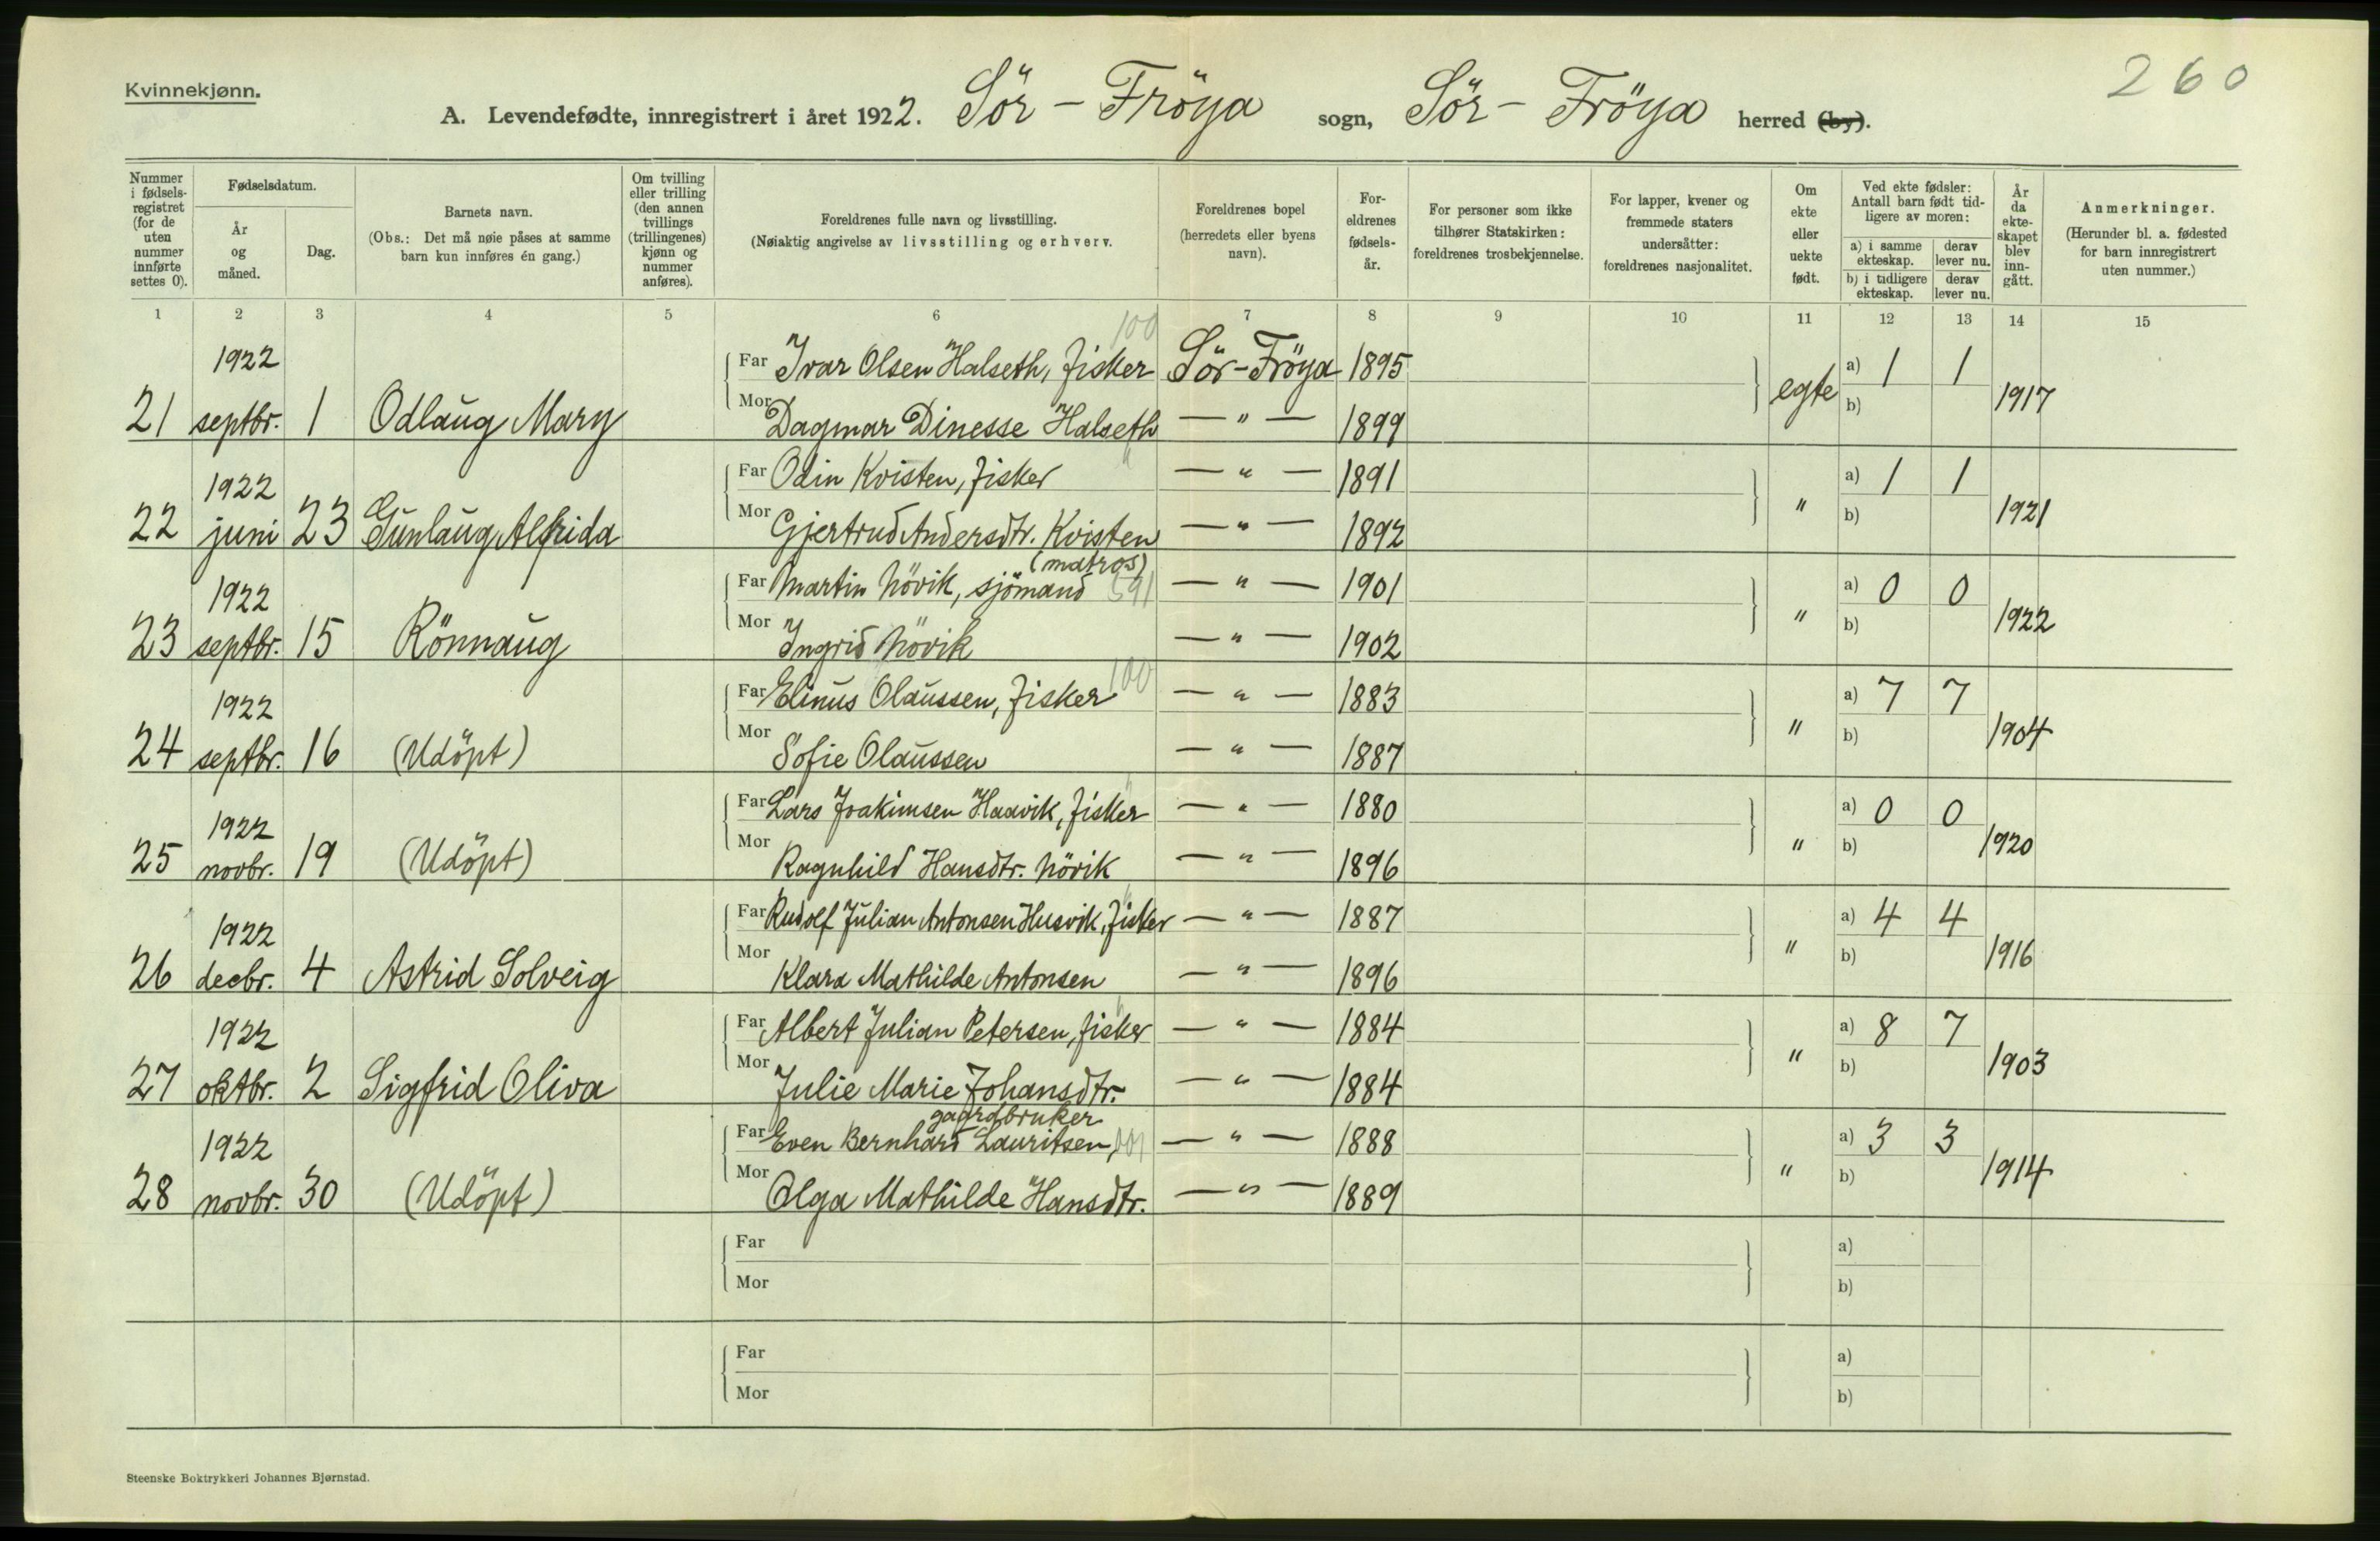 260
Kvinnekjønn.
A. Levendefødte, innregistrert i året 1922. Sör-Fröya sogn, Sör-Fröya herred (by).
Nummer i fødselsregistret (for de uten nummer innførte settes 0).
Fødselsdatum.
År og måned.
Dag.
Barnets navn.
(Obs.: Det må nøie påses at samme barn kun innføres én gang.)
Om tvilling eller trilling (den annen tvillings (trillingenes) kjønn og nummer anføres).
Foreldrenes fulle navn og livsstilling.
(Nøiaktig angivelse av livsstilling og erhverv.
Foreldrenes bopel (herredets eller byens navn).
Foreldrenes fødselsår.
For personer som ikke tilhører Statskirken: foreldrenes trosbekjennelse.
For lapper, kvener og fremmede staters undersåtter: foreldrenes nasjonalitet.
Om ekte eller uekte født.
Ved ekte fødsler: Antall barn født tidligere av moren:
a) i samme ekteskap. derav lever nu.
b) i tidligere ekteskap. derav lever nu.
År da ekteskapet blev inngått.
Anmerkninger.
(Herunder bl. a. fødested for barn innregistrert uten nummer.)
1 2 3 4 5 6 7 8 9 10 11 12 13 14 15
100
21 1922 septbr. 1 Odlaug Mary
Far Ivar Olsen Halseth, fisker Sör-Fröya 1895 egte a) 1 1 1917
Mor Dagmar Dinesse Halseth — " — 1899 b)
22 1922 juni 23 Gunlaug Alfrida
Far Odin Kvisten, fisker — " — 1891 " a) 1 1 1921
Mor Gjertrud Andersdtr. Kvisten — " — 1892 b)
23 1922 septbr. 15 Rönnaug
(matros)
Far Martin Növik, sjömand 591 — " — 1901 " a) 0 0 1922
Mor Ingrid Növik — " — 1902 b)
100
24 1922 septbr. 16 (Udöpt)
Far Elinus Olaussen, fisker — " — 1883 " a) 7 7 1904
Mor Sofie Olaussen — " — 1887 b)
25 1922 novbr. 19 (Udöpt)
Far Lars Joakimsen Haavik, fisker — " — 1880 " a) 0 0 1920
Mor Ragnhild Hansdtr. Növik — " — 1896 b)
26 1922 decbr. 4 Astrid Solveig
Far Rudolf Julian Antonsen Husvik, fisker — " — 1887 " a) 4 4 1916
Mor Klara Mathilde Antonsen — " — 1896 b)
27 1922 oktbr. 2 Sigfrid Oliva
Far Albert Julian Petersen, fisker — " — 1884 " a) 8 7 1903
Mor Julie Marie Johansdtr. — " — 1884 b)
28 1922 novbr. 30 (Udöpt)
gaardbruker
Far Even Bernhard Lauritsen, — " — 1888 " a) 3 3 1914
Mor Olga Mathilde Hansdtr. — " — 1889 b)
Far a)
Mor b)
Far a)
Mor b)
Steenske Boktrykkeri Johannes Bjørnstad.